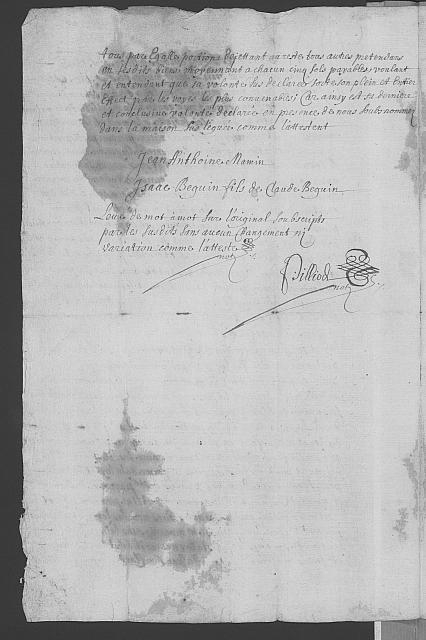 tous par Egalles portions Dejettant au reste tous autres pretendans
au susdits biens moyennant a chacun cinq sols payables, voulant
et entendant que sa volonté sus declarée sorte son plein et Entier
Effect par les voyes le plus convenables; Car ainsy est sa derniere
et conclusive volonté declarée en presence de nous soubs nommez
dans la maison sus leguée comme l'attestent
Jean Anthoine Mamin
Isaac Beguin fils de Claude Beguin
Levé de mot à mot sur l'original soubscripts
par les susdits sans aucun Changement nj
variation comme l'atteste
not
not